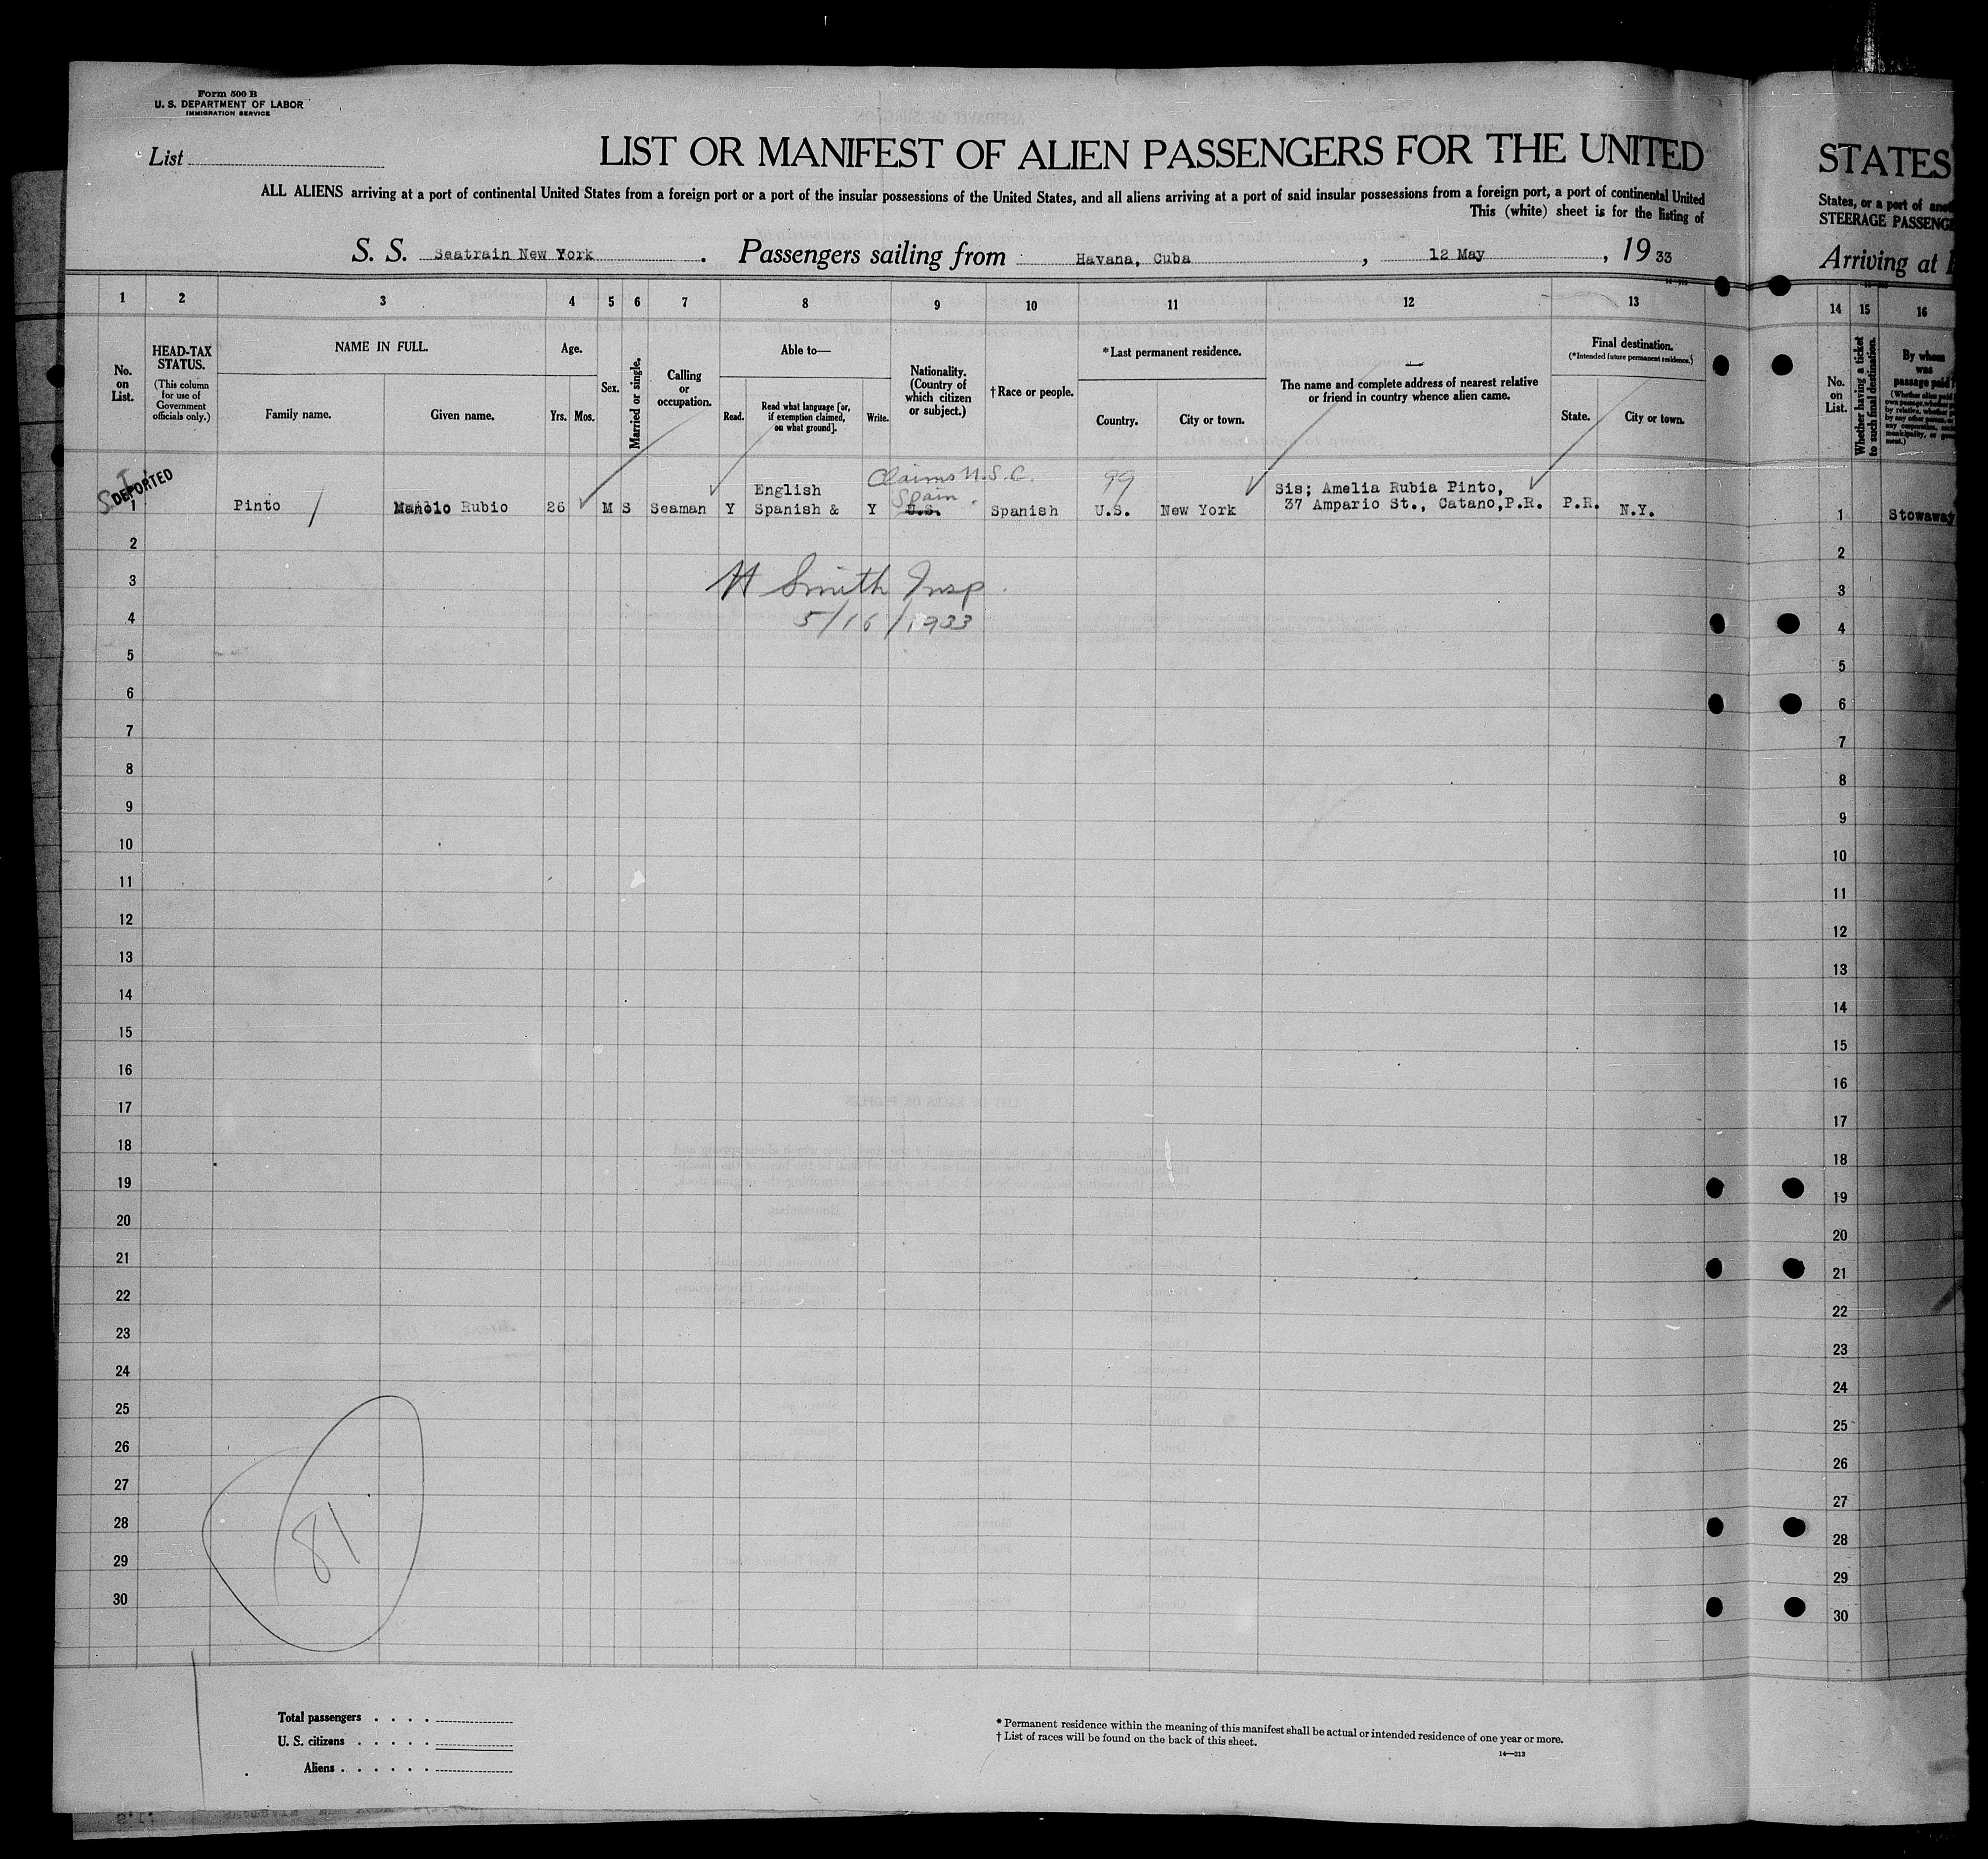 Form 500 B
U. S. DEPARTMENT OF LABOR
IMMIGRATION SERVICE
List
LIST OR MANIFEST OF ALIEN PASSENGERS FOR THE UNITED
ALL ALIENS arriving at a port of continental United States from a foreign port or a port of the insular possessions of the United States, and all aliens arriving at a port of said insular possessions from a foreign port, a port of continental United
This (white) sheet is for the listing of
S. S. Seatrain New York. Passengers sailing from Havana, Cuba, 12 May, 1933
1 2 3 4 5 6 7 8 9 10 11 12 13
No. on List.
HEAD-TAX STATUS.
(This column for use of Government officials only.)
NAME IN FULL.
Family name.
Given name.
Age.
Yrs. Mos.
Sex.
Married or single.
Calling or occupation.
Able to—
Read.
Read what language [or, if exemption claimed, on what ground].
Write.
Nationality. (Country of which citizen or subject.)
†Race or people.
*Last permanent residence.
Country.
City or town.
The name and complete address of nearest relative or friend in country whence alien came.
Final destination.
(*Intended future permanent residence.)
State.
City or town.
S.I.
DEPORTED
Claims U.S.C.
99
English
Spain
Sis; Amelia Rubia Pinto,
1 Pinto Rubio 26 M S Seaman Y Spanish & Y U.S. Spanish U.S. New York 37 Ampario St., Catano,P.R. P.R. N.Y.
H Smith Insp.
5/16/1933
2
3
4
5
6
7
8
9
10
11
12
13
14
15
16
17
18
19
20
21
22
23
24
25
26
27
28
29
30
81
Total passengers
U. S. citizens
Aliens
* Permanent residence within the meaning of this manifest shall be actual or intended residence of one year or more.
† List of races will be found on the back of this sheet.
14—213
STATES
States, or a port of
STEERAGE
Arriving at
14 15 16
No. on List.
Whether having a ticket to such final destination.
By whom was passage paid?
1 Stowaway
2
3
4
5
6
7
8
9
10
11
12
13
14
15
16
17
18
19
20
21
22
23
24
25
26
27
28
29
30